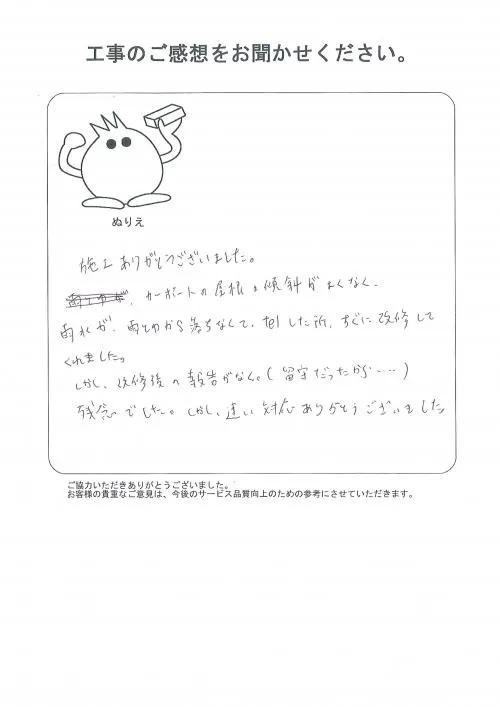 工事のご感想をお聞かせください。
ぬりえ
施工ありがとうございました。
カーポートの屋根の傾斜がよくなく、
雨水が、雨どいから落ちなくて、telした所、すぐに改修して
くれました。
しかし、改修後の報告がなく。(留守だったから……)
残念でした。しかし、速い対応ありがとうございました
ご協力いただきありがとうございました。
お客様の貴重なご意見は、今後のサービス品質向上のための参考にさせていただきます。